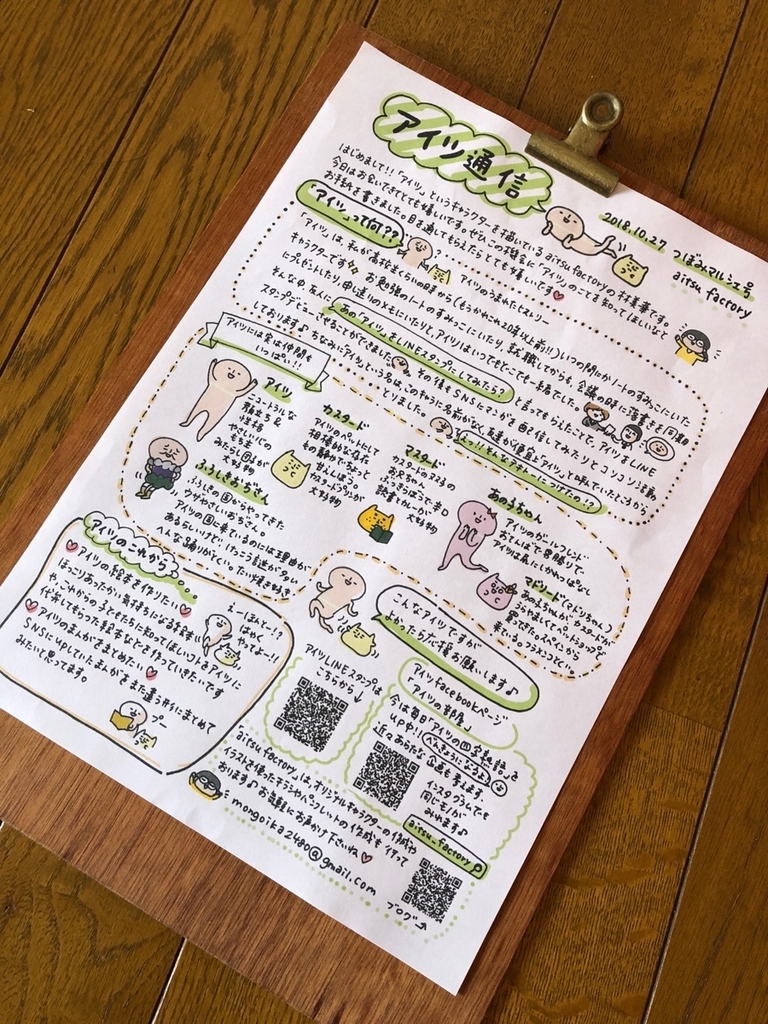 アイツ通信
2018.10.27 つぼみマルシェ号
aitsu factory
はじめまして!!「アイツ」というキャラクターを描いているaitsu factoryの
今日はお会いできてとても嬉しいです。ぜひこの機会に「アイツ」のことも知ってほしいなと
お手紙を書きました。目を通してもらえたらとても嬉しいです
「アイツ」って何??
アイツのうまれたヒストリー
「アイツ」は、私が高校生くらいの時から(もうかれこれ20年以上前!!)いつの間にかノートのすみっこにいた
キャラクターです お勉強のノートのすみっこにいたり、就職してからも、会議の時に落書きを同期
にプレゼントしたり、申し送りのメモにいたりと、アイツはいつでもどこでも一緒でした。
そんな中、友人に「あの"アイツ"をLINEスタンプにしてみたら?」と言ってもらえたことで、アイツをLINE
スタンプデビューさせることができました その後もSNSにマンガを自己配信してみたりとコツコツ活動
しております♪ ちなみに"アイツ"という名は、このキャラに名前がなく、友達が便宜上"アイツ"と呼んでいたところから
とりました。
アイツには実は仲間も
いっぱい!!
アイツ
ニュートラルな
顔立ち&
性格
やさしい心の
もち主
みたらし団子が
大好物
カスタード
アイツのペットにして
相棒的な存在
もの静かでちょっと
甘えんぼう。
カスタードプリンが
大好物
マスタード
カスタードの2コ上の
お兄ちゃん
ぶっきらぼうで辛口
読書とカレーが大好物
あのこちゃん
アイツのガールフレンド
おてんばで勝ち気
アイツは尻にしかれっぱなし
マドリード(マドリちゃん)
ふしぎおじさん
ふしぎの国からやってきた
ウザやさしいおぢさん。
アイツの国に来ているのには理由が
あるらしいけど…
アイツのこれから。
アイツの絵本を作りたい
ほっこりあったかい気持ちになる絵本
や、これからの子どもたちに知ってほしいコトをアイツに
代弁してもらった絵本などを作っていきたいです
アイツのまんがをまとめたい
SNSにUPしていたまんがをまた違う形にまとめて
みたいと思ってます。
えーほんとー!?
はやく
やってよー!!
こんなアイツですが
よかったら応援お願いします♪
アイツLINEスタンプは
こちらから↓
アイツfacebookページ
「アイツの部屋」
今は毎日「アイツの四字熟語」を
UP中!!
近々あらたな企画も考え中。
インスタグラムでも
同じモノが
みれます♪
aitsu_factory
aitsu factoryは、オリジナルキャラクターの作成や
イラストを使ったチラシやパンフレットの作成も行って
おります♪お気軽にお声がけ下さいね
mongoika2480@gmail.com
ブログ→